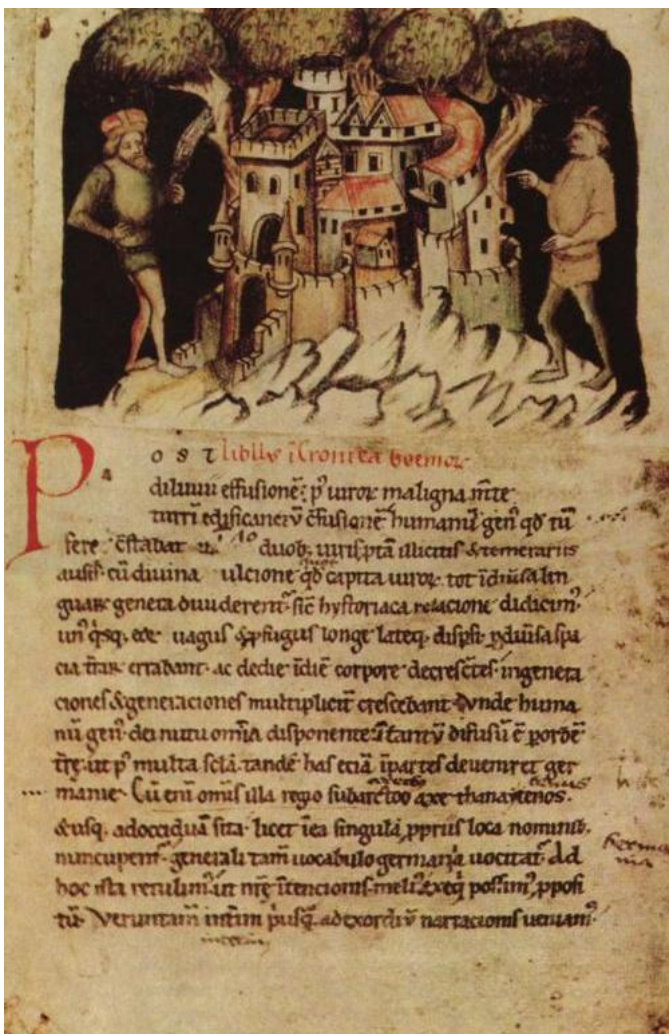 P OST liblus i cronica boemoꝝ
diluuii effusionē; pꝰ uiroꝝ maligna m̄te
turrī edificanciū ꝯfusionē humanū genꝰ qd̄ tū
fere ꝯstabat duob; uiris, ꝓ tā illicitis & temerariis
ausis cū diuina ulcione qd̄ capita uiroꝝ tot ī diuisa lin
guaꝝ genera diuiderent᷑ sic̄ hystoriaca relacione didicimꝰ
unꝰ qͥsq; eoꝝ uagus & ꝓfugus longe lateq; dispsi ꝑ diuisa spa
cia t̄raꝝ errabant ac de die ī diē corpore decrescētes in genera
ciones & generaciones multiplicit̄ crescebant. Vnde huma
nū genꝰ dei nutu om̄ia disponente ī tantū difusū ē ꝑ orbē
t̄re, ut pꝰ multa sc̄la tandē has eciā ī partes deueniret ger
manie. Cū eni om̄is illa regio sub arctoo axe thanaytenos.
& usq; ad occiduā sita licet ī ea singula ꝓpriis loca nominib;
nuncupent᷑ generali tam̄ uocabulo germania uocitat᷑ Ad
hoc ista retulimꝰ ut nr̄e ītencionis meliꝰ exeq̄ possimꝰ ꝓposi
tū. Veruntam̄ interim pͥusq̄ ad exordiū narracionis ueniamꝰ
Germa
nia